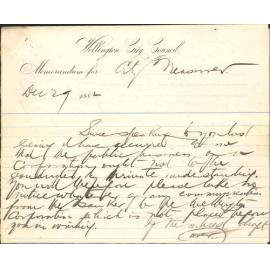 Wellington City Council.
Memorandum for City Treasurer
Dec 29 1882
Since speaking to you last
evening it has occurred to me
that the public business of a
Corporation ought not to be
conducted by private understanding.
You will therefore please take no
notice whatever of any communication
from the Banker to the Wellington
Corporation which is not placed before
you in writing.